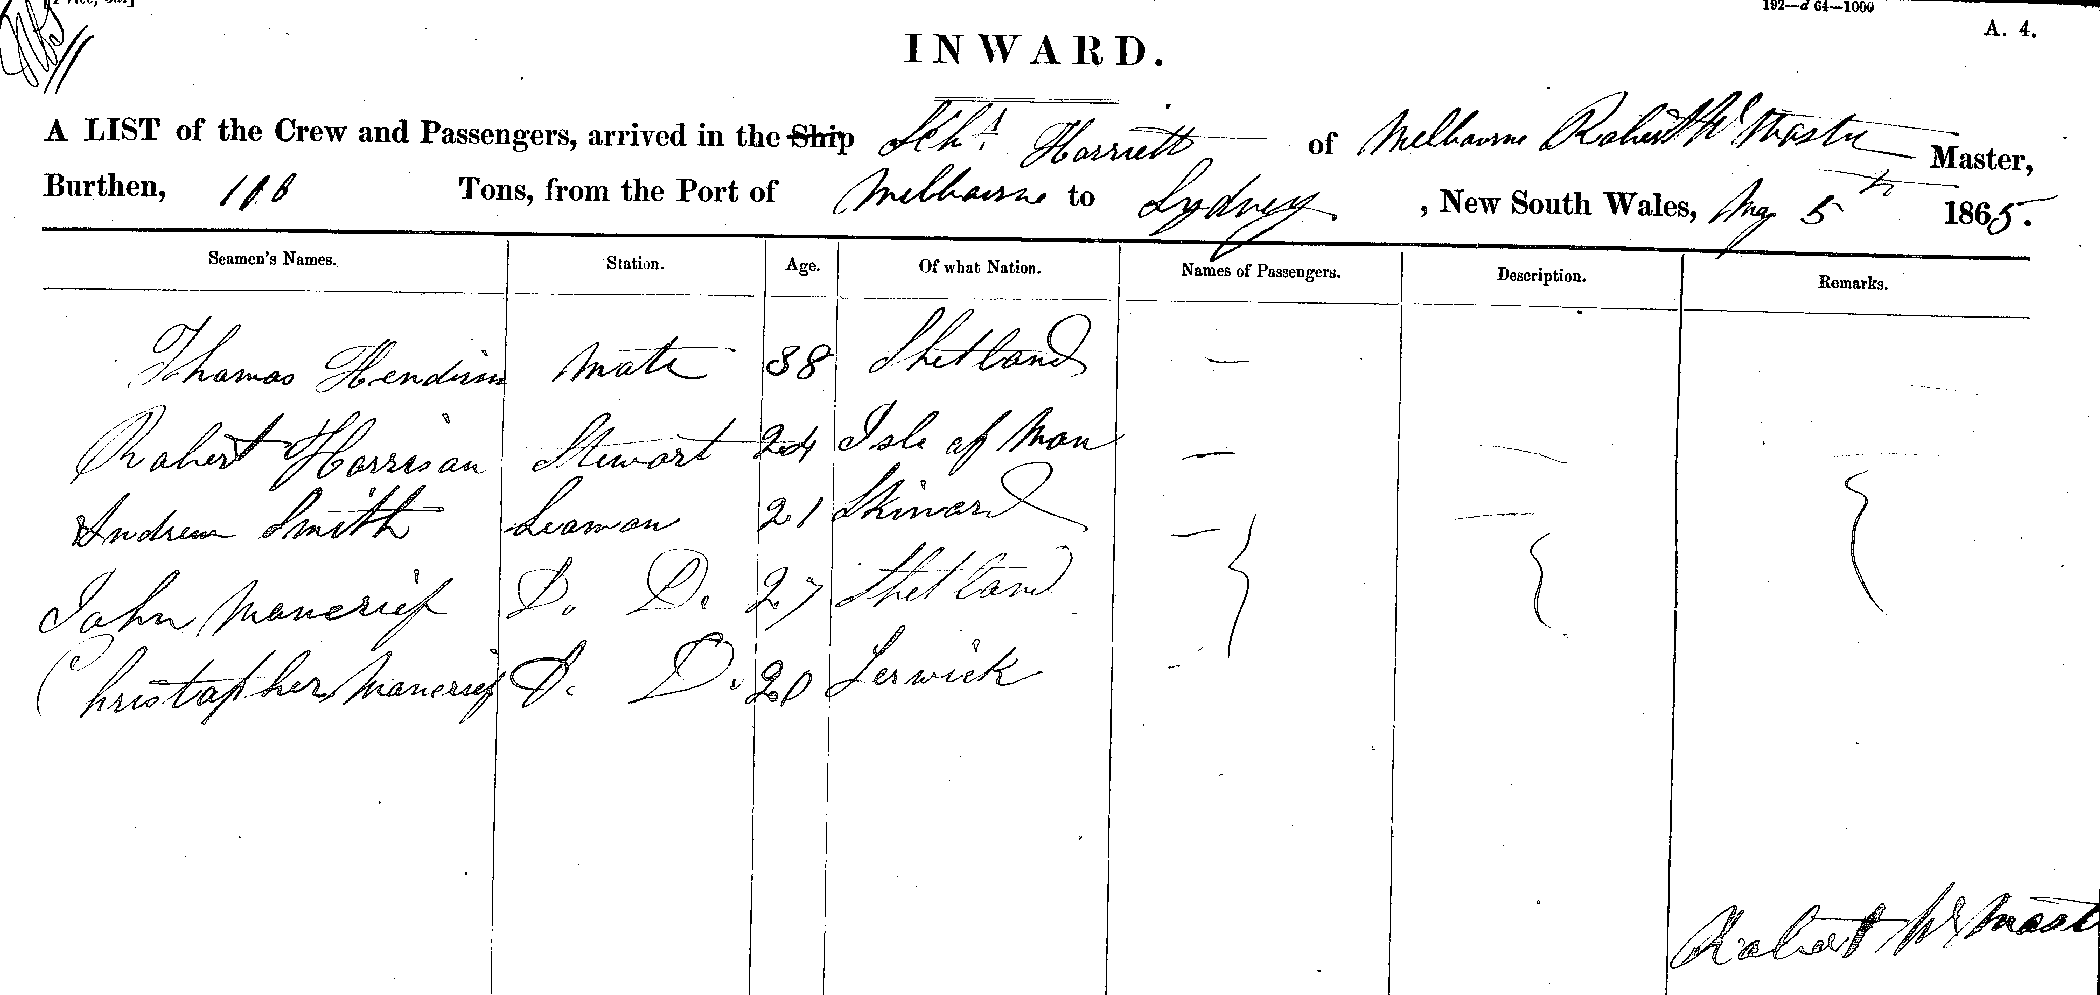 192—d 64—1000
A. 4.
INWARD.
A LIST of the Crew and Passengers, arrived in the Ship Schr Harriett of Melbourne Robert Mc Master Master,
Burthen, Tons, from the Port of Melbourne to Sydney, New South Wales, 5th 1865.
Seamen's Names. Station. Age. Of what Nation. Names of Passengers. Description. Remarks.
Thomas mate 38 Shetland —
Robert Harrison Stewart 24 Isle of Man — — —
Andrew Smith Seaman 21 — —
John Mancrief D. D. 27 Shetland
Christapher Mancrief D. D. 20 Lerwick -
Robert Mc Mast